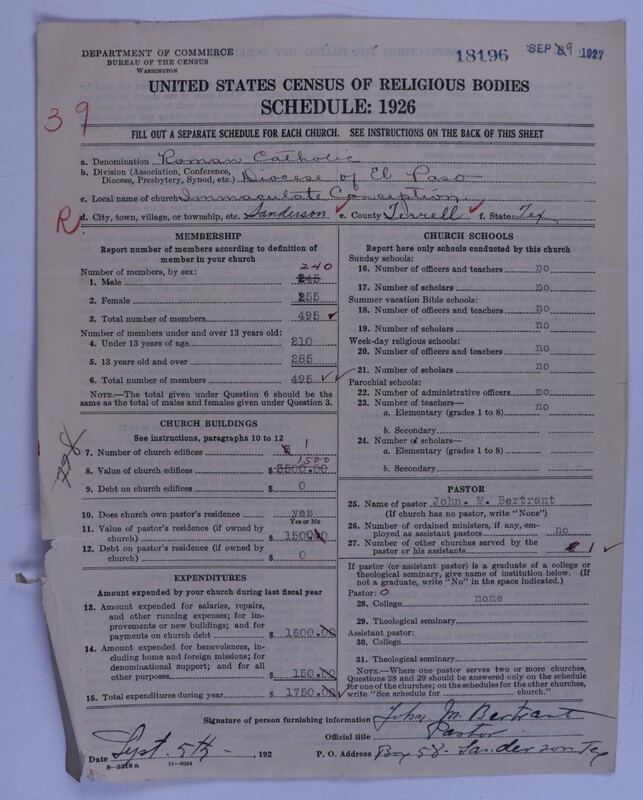 DEPARTMENT OF COMMERCE
BUREAU OF THE CENSUS
WASHINGTON
18196
SEP 9 1927
UNITED STATES CENSUS OF RELIGIOUS BODIES
SCHEDULE: 1926
39
FILL OUT A SEPARATE SCHEDULE FOR EACH CHURCH. SEE INSTRUCTIONS ON THE BACK OF THIS SHEET
a. Denomination Roman Catholic
b. Division (Association, Conference,
Diocese, Presbytery, Synod, etc.) Diocese of El Paso
c. Local name of church Immaculate Conception
R d. City, town, village, or township, etc. Sanderson e. County Terrell f. State Tex
MEMBERSHIP
Report number of members according to definition of
member in your church
Number of members, by sex:
240
1. Male 245
2. Female 255
3. Total number of members 495
Number of members under and over 13 years old:
4. Under 13 years of age 210
5. 13 years old and over 285
6. Total number of members 495
NOTE.—The total given under Question 6 should be
the same as the total of males and females given under Question 3.
CHURCH BUILDINGS
See instructions, paragraphs 10 to 12
7. Number of church edifices 1
1500
8. Value of church edifices $ 3500.00
9. Debt on church edifices $ 0
10. Does church own pastor's residence yes
Yes or No
11. Value of pastor's residence (if owned by
church) $ 1500
12. Debt on pastor's residence (if owned by
church) $ 0
EXPENDITURES
Amount expended by your church during last fiscal year
13. Amount expended for salaries, repairs,
and other running expenses; for im-
provements or new buildings; and for
payments on church debt $ 1600.00
14. Amount expended for benevolences, in-
cluding home and foreign missions; for
denominational support; and for all
other purposes $ 150.00
15. Total expenditures during year $ 1750.00
CHURCH SCHOOLS
Report here only schools conducted by this church
Sunday schools:
16. Number of officers and teachers no
17. Number of scholars no
Summer vacation Bible schools:
18. Number of officers and teachers no
19. Number of scholars no
Week-day religious schools:
20. Number of officers and teachers no
21. Number of scholars no
Parochial schools:
22. Number of administrative officers no
23. Number of teachers—
a. Elementary (grades 1 to 8) no
b. Secondary
24. Number of scholars—
a. Elementary (grades 1 to 8)
b. Secondary
PASTOR
25. Name of pastor John. M. Bertrant
(If church has no pastor, write "None")
26. Number of ordained ministers, if any, em-
ployed as assistant pastors no
27. Number of other churches served by the
pastor or his assistants 1
If pastor (or assistant pastor) is a graduate of a college or
theological seminary, give name of institution below. (If
not a graduate, write "No" in the space indicated.)
Pastor: O
28. College none
29. Theological seminary
Assistant pastor:
30. College
31. Theological seminary
NOTE.—Where one pastor serves two or more churches,
Questions 28 and 29 should be answered only on the schedule
for one of the churches; on the schedules for the other churches,
write "See schedule for church."
Signature of person furnishing information John M. Bertrant
Official title Pastor
Date Sept. 5th - , 192 P. O. Address Box 58 - Sanderson Tex
8—5318a 11—9034